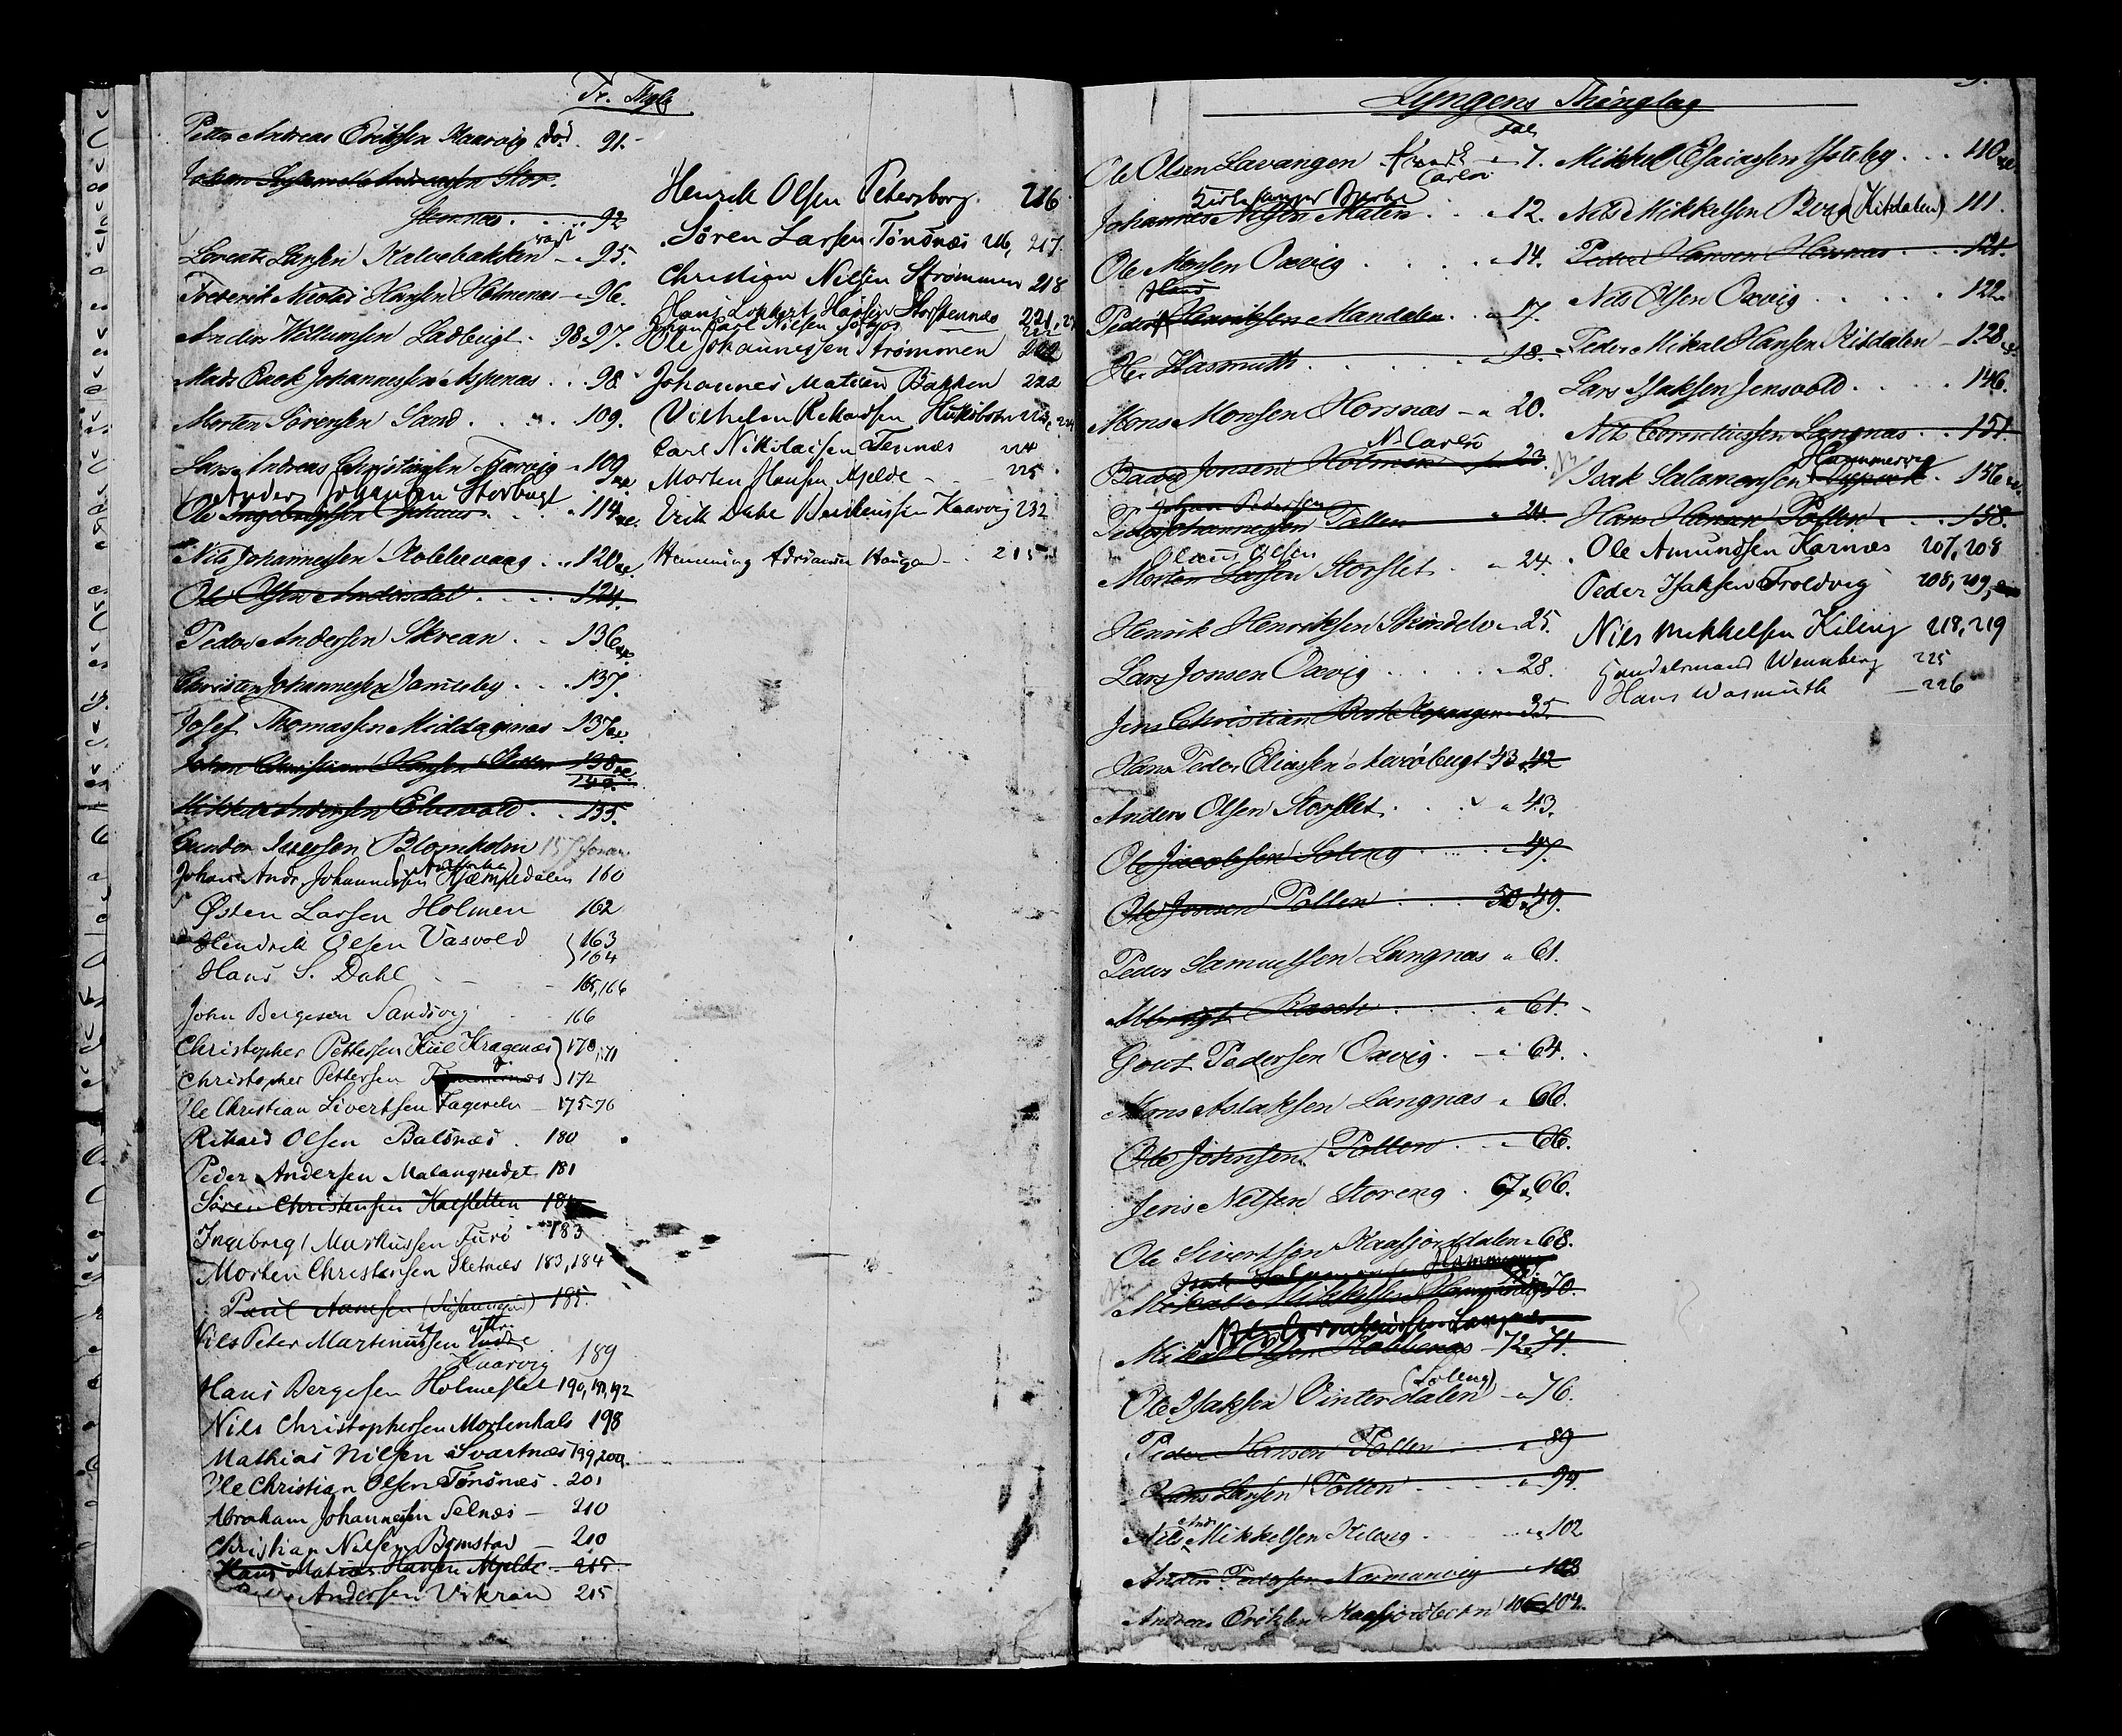 Petter Andreas Eriksen Kaarvig død. 91.
Johan Andreassen Stor-
stennes. 92
Lorentz Larsen Kalvebakken 95.
Frederik Nicolai Hansen Holmenæs 96.
Anders Willumsen Ladbergt. 98, 97.
Mads Rack Johannessen Aspenæs. 98
Morten Sørensen Sand. 109.
Lars Andreas Christiansen Kaarvig 109
Anders Johansen Storbugt
Ole Ingebrigtsen 114
Nils Johannessen Kobbevaag. 120
Ole Olsen Andersdal. 124.
Peder Andersen Skrean. 136
Christen Johannessen Jamteby. 137.
Josef Thomassen Middagsnæs 137
Johan Christian Hansen Sletten 138
139.
Mikkel Andersen Elvevold. 155.
Gundor Iversen Blomholm 157
Johan Andr. Johannessen Kjæmpedalen 160
Østen Larsen Holmen 162
Hendrik Olsen Vasvold 163
164
Hans S. Dahl 165, 166
John Bergesen Sandsvig 166
Christopher Pettersen Kiil Kragenæs 170, 171
Christopher Pettersen 172
Ole Christian Sivertsen Fagerelv 175-76
Rikard Olsen Balsnæs. 180
Peder Andersen Malangseidet 181
Søren Christensen Kalsletten 181
Ingebrigt Markussen Furø 183
Morten Christensen Sletnæs 183, 184
Paul Aanesen 185.
Nils Peter Martinussen Indre
Kaarvig 189
Hans Bergesen Holmeslet 190, 191, 192
Nils Christophersen Mortenhals 198
Mathias Nilsen Svartnæs 199, 200.
Ole Christian Olsen Tønsnæs. 201
Abraham Johannesen Selnæs 210
Christian Nilsen Bomstad 210
Hans Matias Hansen Mjelde 215.
Andersen Vikran 215
Henrik Olsen Petersborg. 216
Søren Larsen Tønsnæs 216, 217
Christian Nilsen Strømmen 218
Hans Lokkert Hansen Storstennes 221
Johan Carl Nielsen 222
Ole Johannessen Strømmen 222
Johannes Matisen Bakken 222
Vilhelm Rikardsen 223, 224
Carl Nikolaisen Tennæs 224
Morten Hansen Mjelde 225
Erik Dahl Berteussen Kaarvig 232
Henning Adriansen Haugen 215
Lyngens Thinglag
Fol
Ole Olsen Lavangen Carlsø 7.
Kirkesanger Bjerke
Johannes Nilsen Malen. 12.
Ole Monsen Oxvig 14.
Hans
Peder Henriksen Mandalen. 17.
Hr. Wasmuth. 18.
Mons Monsen Horsnæs 20.
N. Carlsø
Baard Jonsen Holmen 23.
Johan Pedersen
Peder Johannesen Pollen 24.
Olaus Olsen
Morten Larsen Storslet. 24.
Henrik Henriksen Skindelv 25.
Lars Jonsen Oxvig 28.
Jens Christian Beck Kopangen 35.
Hans Peder Eliassen Aarøbugt 43, 42
Anders Olsen Storslet. 43.
Ole Jacobsen Soleng 47.
Ole Jonsen Pollen 50, 49.
Peder Samuelsen Langnæs 61.
Albrigt Rasch. 61.
Gout Pedersen Oxvig. 64.
Mons Aslaksen Langnæs 66.
Ole Johnsen Pollen 66.
Jens Nilsen Storeng. 67, 66.
Ole Sivertsen Kaafjorddalen 68.
Isak Salamonsen Hammervig
Mikal Mikkelsen 70.
Nils Corneliussen Langnæs
Mikal Olsen Kobbenæs 72, 71.
(Soleng)
Ole Isaksen Vinterdalen 76.
Peder Hansen Pollen 89
Hans Larsen Pollen 94.
Nils Andr. Mikkelsen Kileng. 102
Anders Pedersen Normanvig 103
Andreas Eriksen Kaafjordbotn 106, 104.
Mikkel Esaiassen Ysteby. 110
Nils Mikkelsen Berg (Kitdalen) 111.
Peder Hansen Horsnæs 121.
Nils Olsen Oxvig 122
Peder Mikal Hansen Kitdalen 128
Lars Isaksen Jensvold. 146.
Nils Corneliussen Langnæs 151.
Hammervig
Isak Salamonsen 156
Hans Hansen Pollen. 158.
Ole Amundsen Karnæs 207, 208
Peder Isaksen Troldvig 208, 209,
Nils Mikkelsen Kileng 218, 219
Handelsmand Wennberg 225
Hans Wasmuth 226